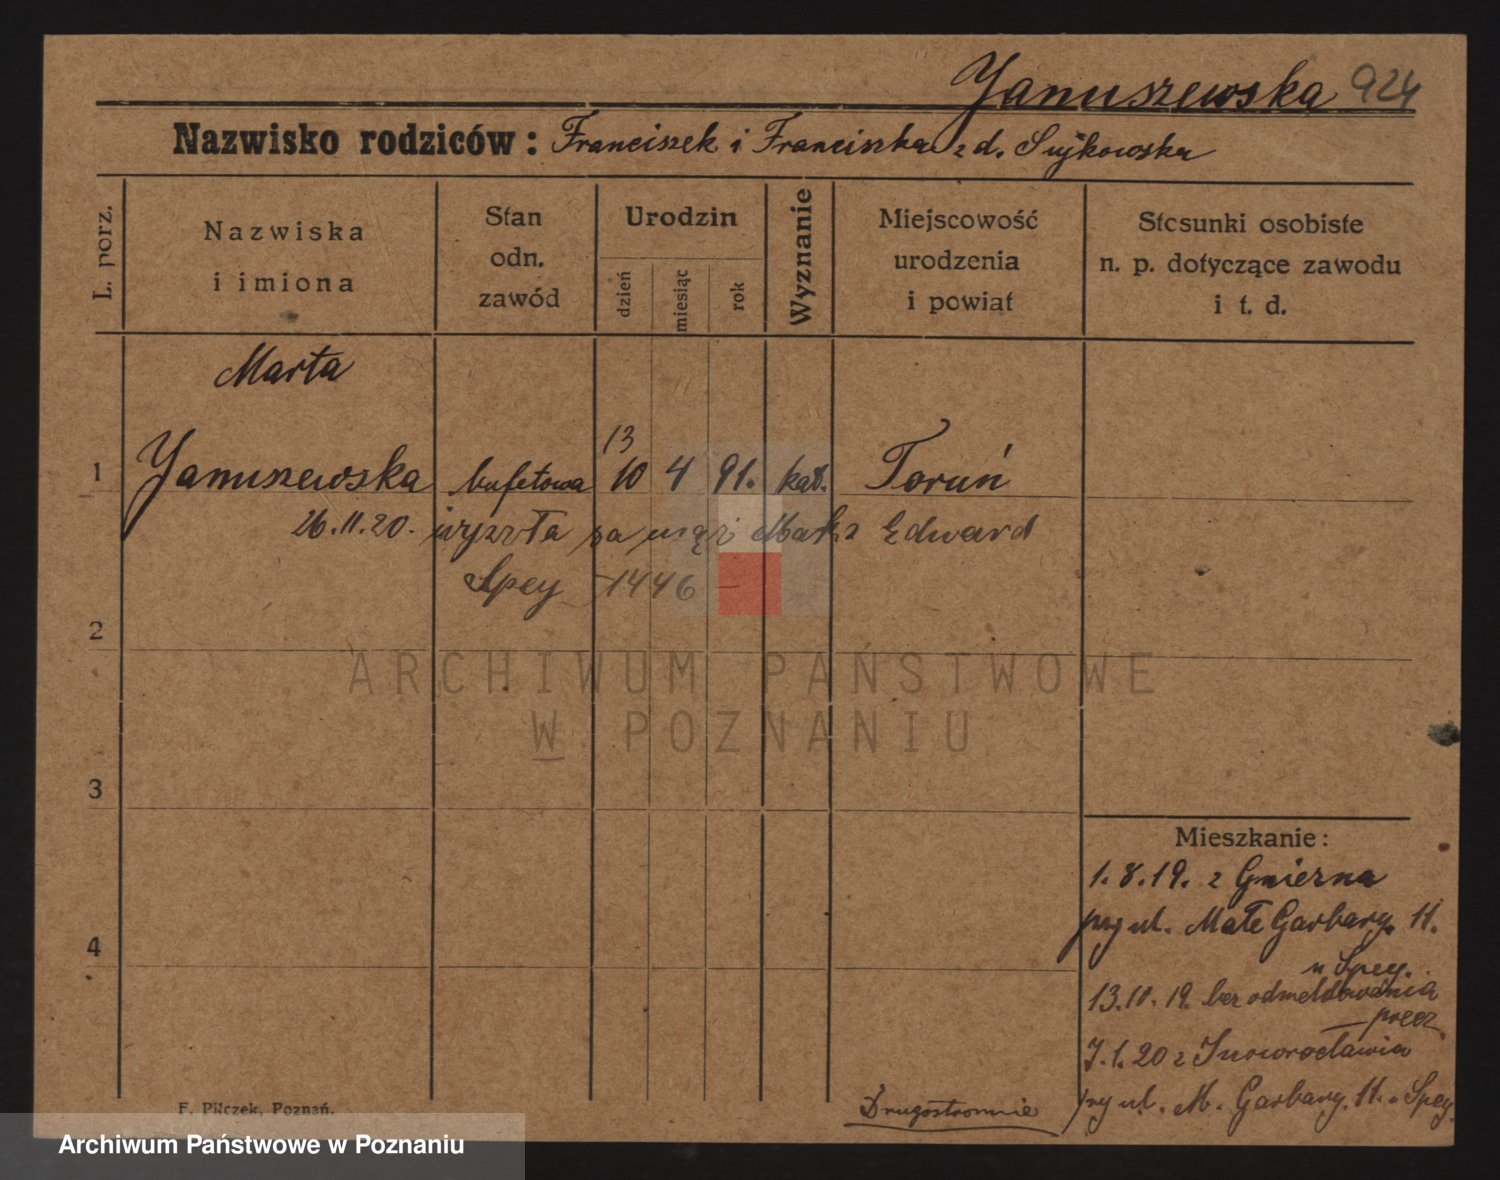 Januszewska 924
Nazwisko rodziców: Franciszek i Franciszka z d. Sujkowska
L. porz.
Nazwiska
i imiona
Stan
odn.
zawód
Urodzin
dzień
miesiąc
rok
Wyznanie
Miejscowość
urodzenia
i powiat
Stosunki osobiste
n. p. dotyczące zawodu
i t. d.
Marta
13
1 Januszewska bufetowa 10 4 91. kat. Toruń
26.11.20. wyszła za mąż Edward
Spey - 1446 -
2
ARCHIWUM PAŃSTWOWE
W POZNANIU
3
Mieszkanie:
1.8.19. z Gniezna
przy ul. Małe Garbary. 11.
u Spey.
4
13.10.19. bez odmeldowania
precz
7.1.20 z Inowrocławia
przy ul. M. Garbary. 11. u Spey.
Drugostronnie
F. Pilczek, Poznań.
Archiwum Państwowe w Poznaniu